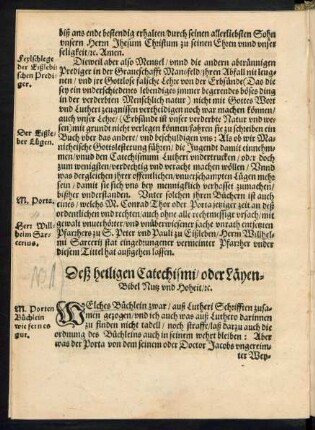 biß ans ende bestendig erhalten durch seinen allerliebsten Sohn
vnsern Herrn Jhesum Christum zu seinen Ehren vnnd vnser
seligkeit/ꝛc. Amen.
Dieweil aber also Mentzel/ vnnd die andern abtrünnigen
Prediger in der Grauefschafft Mansfeld jhren Abfall nit leug-
nen/ vnd jre Gottlose falsche Lehre von der Erbsünde (Das die
sey ein vnderschiedenes lebendiges jmmer begerendes böses ding
in der verderbten Menschlich natur) nicht mit Gottes Wort
vnd Lutheri zeugnissen vertheidigen noch war machen können/
auch vnser Lehre/ (Erbsünde ist vnser verderbte Natur vnd we-
sen) mit grunde nicht verlegen können/ fahren sie zu/ schreiben ein
Buch vber das ander/ vnd beschuldigen vns: Als ob wir Ma-
nicheische Gotteslesterung führen/ die Jugendt damit einneh-
men/ vnnd den Catechismum Lutheri vndertrucken/ oder doch
zum wenigsten/ verdechtig vnd veracht machen wöllen/ Vnnd
was dergleichen jhrer offentlichen/ vnuerschampten Lügen mehr
sein/ damit sie sich vns bey menniglich verhasset zumachen/
bißher vnderstanden. Vnter solchen jhren Büchern ist auch
eines/ welchs M. Conrad Thor oder Porta jetziger zeit an deß
ordentlichen vnd rechten/ auch ohne alle rechtmessige vrsach/ mit
gewalt vnuerhörter/ vnd vnüberwiesener sache vnrath entsetzten
Pfarherrs zu S. Peter vnd Pauli zu Eißleben/ Herrn Wilhel-
mi Sarcerij stat eingedrungener vermeinter Pfarrher vnder
diesem Tittel hat außgehen lassen.
Feylschlege
der Eißlebi
schen Predi
ger.
Der Eißle-
ber Lügen.
M. Porta.
Herr Wil-
helm Sar-
cerius.
Deß heiligen Catechismi/ oder Läyen-
Bibel Nutz vnd Hoheit/ꝛc.
M. Porten
Büchlein
wie fern es
gut.
WElches Büchlein zwar/ auß Lutheri Schrifften zusa-
men gezogen/ vnd ich auch was auß Luthero darinnen
zu finden nicht tadell/ noch straffe/ laß darzu auch die
ordnung des Büchleins auch in seinem wehrt bleiben: Aber
was der Porta von dem seinem oder Doctor Jacobs vngereim-
ter Wey-